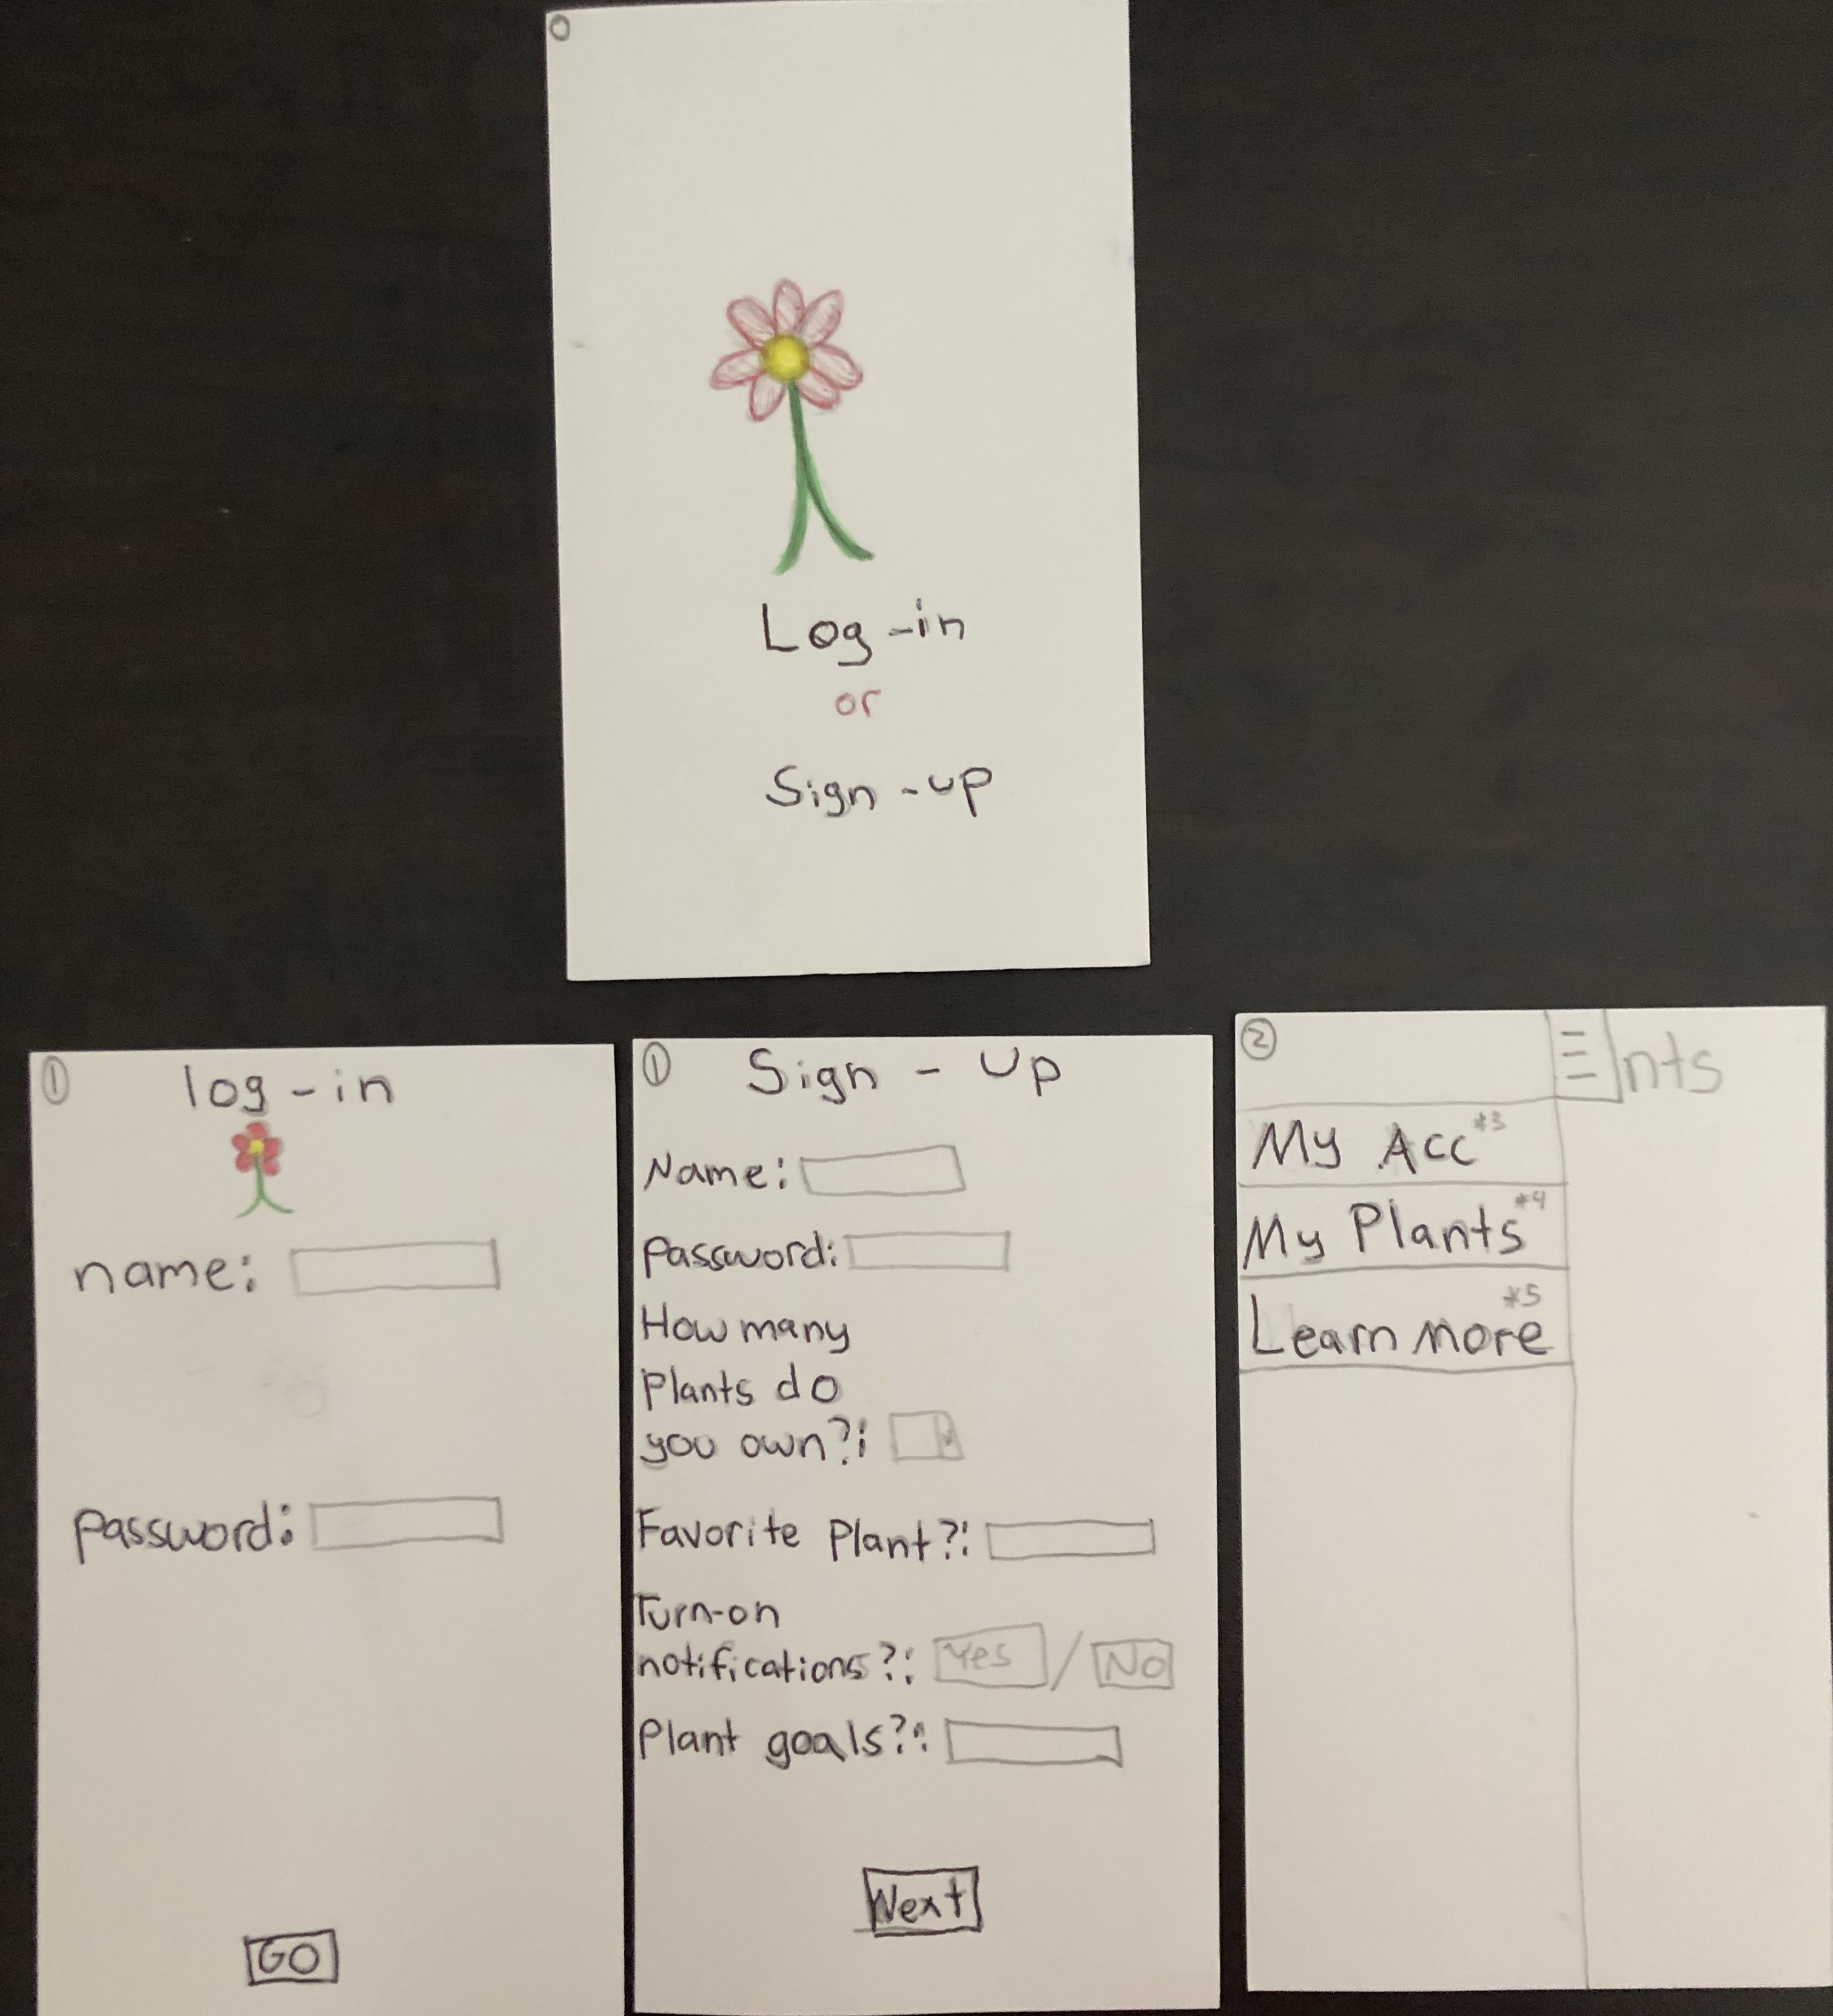 0
Log-in
or
Sign-up
1
log-in
name:
password:
GO
1
Sign-Up
Name:
Password:
How many
Plants do
you own?:
Favorite Plant?:
Turn-on
notifications?: Yes / No
Plant goals?:
Next
2
nts
My Acc *3
My Plants *4
Learn more *5